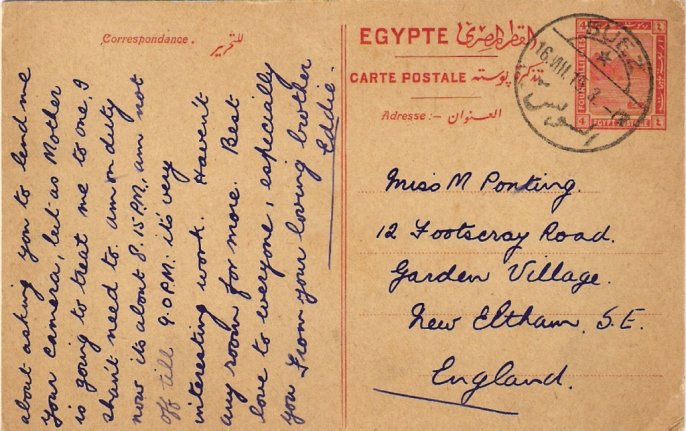 Correspondance. للتحرير
about asking you to lend me
your camera, but as Mother
is going to treat me to one, I
shan't need to. am on duty
now its about 8.15 PM, am not
off till 9.0 P.M. it's very
interesting work. Haven't
any room for more. Best
love to everyone, especially
you From your loving brother
Eddie.
EGYPTE القطر المصرى
CARTE POSTALE تذكرة بوسته
Adresse:- العنوان
SUEZ
16.VIII.
السويس
4 4
EGYPT POSTAGE
Miss M Ponting.
12 Footscray Road.
Garden Village.
New Eltham, S.E.
England.